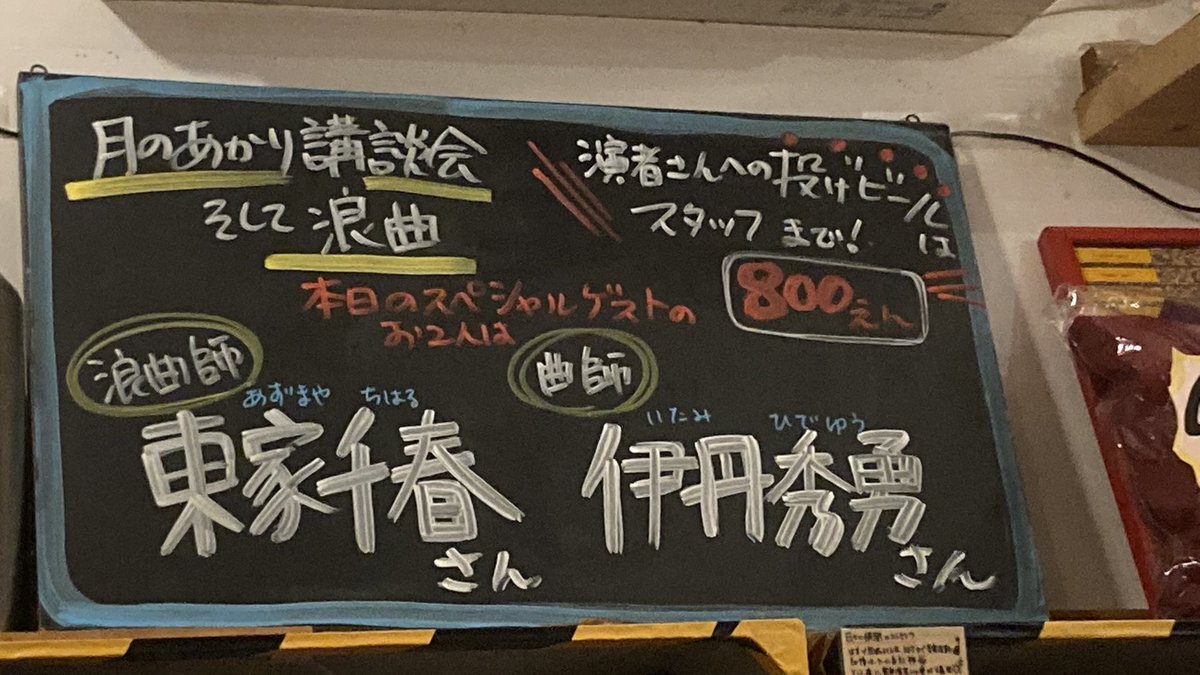 月のあかり講談会
そして浪曲
演者さんへの投げビールは
スタッフまで!
800えん
本日のスペシャルゲストの
お2人は
浪曲師
あずまや ちはる
東家千春
さん
曲師
いたみ ひでゆう
伊丹秀勇
さん